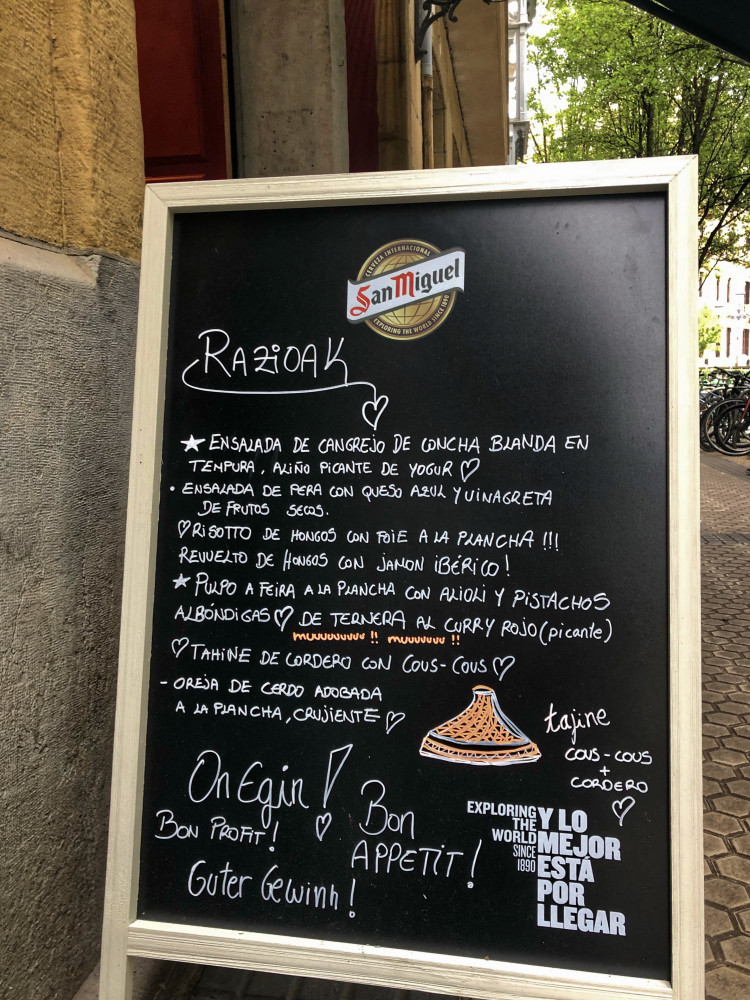 CERVEZA INTERNACIONAL
San Miguel
EXPLORING THE WORLD SINCE 1890
RAZiOAK
★ ENSALADA DE CANGREJO DE CONCHA BLANDA EN
TEMPURA, ALIÑO PICANTE DE YOGUR ♡
• ENSALADA DE PERA CON QUESO AZUL Y VINAGRETA
DE FRUTOS SECOS.
♡ RISOTTO DE HONGOS CON FOIE A LA PLANCHA !!!
REVUELTO DE HONGOS CON JAMON IBÉRICO !
★ PULPO A FEIRA A LA PLANCHA CON ALIOLI Y PISTACHOS
ALBÓNDIGAS ♡ DE TERNERA AL CURRY ROJO (picante)
muuuuuuuu !! muuuuuu !!
♡ TAHINE DE CORDERO CON COUS-COUS ♡
- OREJA DE CERDO ADOBADA
A LA PLANCHA, CRUJIENTE ♡
tajine
COUS-COUS
+
CORDERO
On Egin !
BON PROFIT !
Bon
APPETIT !
Guter Gewinn !
EXPLORING
THE
WORLD
SINCE
1890
Y LO
MEJOR
ESTÁ
POR
LLEGAR